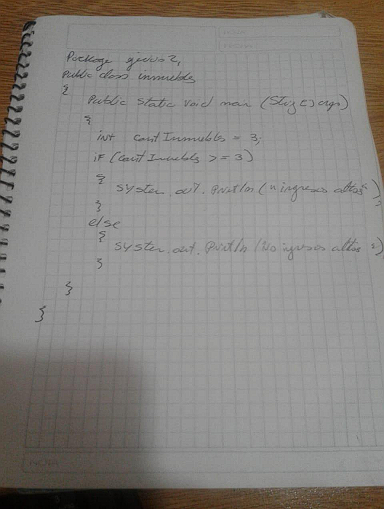 Package gevos2,
Public class inmuebles
{
Public static void main (String [] args)
{
int cantInmuebles = 3;
if (cantInmuebles >= 3)
{
System.out.println ("ingresos altos");
}
else
{
System.out.println ("no ingresos altos");
}
}
}